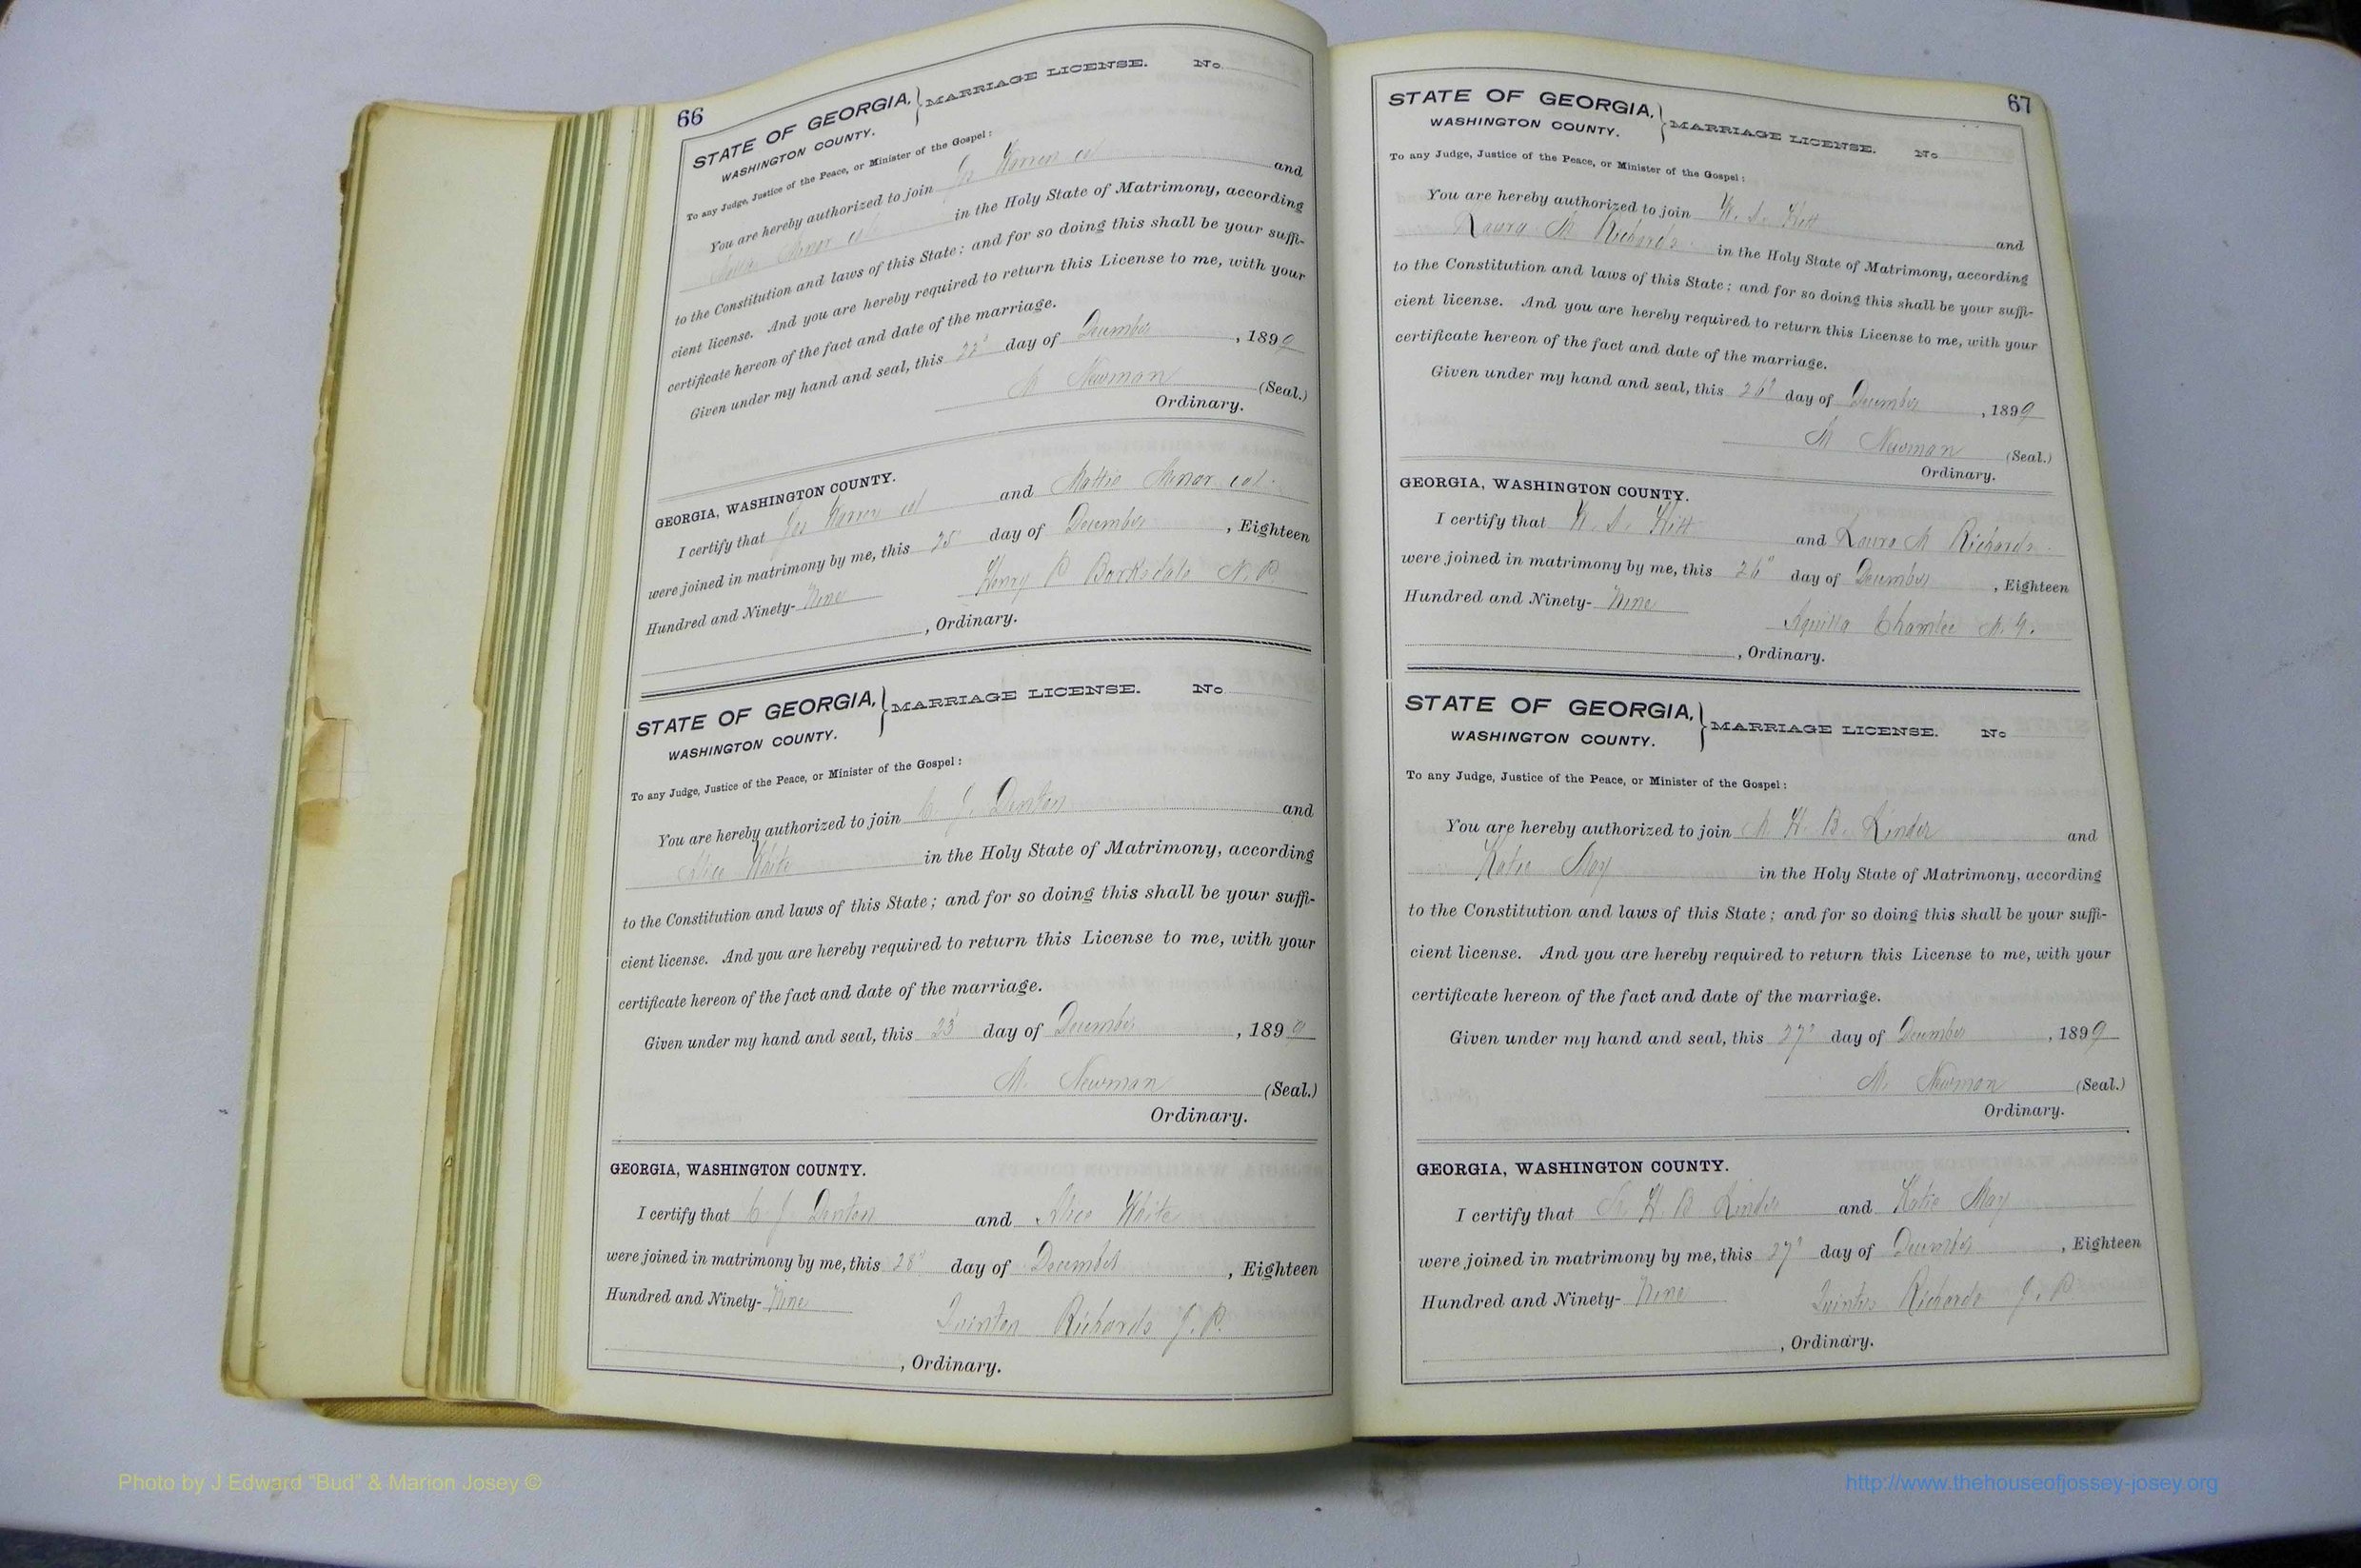 66
STATE OF GEORGIA, MARRIAGE LICENSE. No
WASHINGTON COUNTY.
To any Judge, Justice of the Peace, or Minister of the Gospel:
You are hereby authorized to join Warren col and
Minor col in the Holy State of Matrimony, according
to the Constitution and laws of this State; and for so doing this shall be your suffi-
cient license. And you are hereby required to return this License to me, with your
certificate hereon of the fact and date of the marriage.
Given under my hand and seal, this 22d day of December, 1899
M Newman (Seal.)
Ordinary.
GEORGIA, WASHINGTON COUNTY.
I certify that Warren col and Mattie Minor col.
were joined in matrimony by me, this 25 day of December, Eighteen
Hundred and Ninety- Nine Henry P Barksdale N.P.
, Ordinary.
STATE OF GEORGIA, MARRIAGE LICENSE. No
WASHINGTON COUNTY.
To any Judge, Justice of the Peace, or Minister of the Gospel:
You are hereby authorized to join C. J. Denton and
Alice White in the Holy State of Matrimony, according
to the Constitution and laws of this State; and for so doing this shall be your suffi-
cient license. And you are hereby required to return this License to me, with your
certificate hereon of the fact and date of the marriage.
Given under my hand and seal, this 23 day of December, 1899
M. Newman (Seal.)
Ordinary.
GEORGIA, WASHINGTON COUNTY.
I certify that C J Denton and Alice White
were joined in matrimony by me, this 28 day of December, Eighteen
Hundred and Ninety- Nine
Quinton Richards J.P.
, Ordinary.
67
STATE OF GEORGIA, MARRIAGE LICENSE. No
WASHINGTON COUNTY.
To any Judge, Justice of the Peace, or Minister of the Gospel:
You are hereby authorized to join W. S. and
Laura M Richards in the Holy State of Matrimony, according
to the Constitution and laws of this State; and for so doing this shall be your suffi-
cient license. And you are hereby required to return this License to me, with your
certificate hereon of the fact and date of the marriage.
Given under my hand and seal, this 26 day of December, 1899
M Newman (Seal.)
Ordinary.
GEORGIA, WASHINGTON COUNTY.
I certify that W. S. and Laura M Richards
were joined in matrimony by me, this 26 day of December, Eighteen
Hundred and Ninety- Nine
Aquilla Chamlee M.G.
, Ordinary.
STATE OF GEORGIA, MARRIAGE LICENSE. No
WASHINGTON COUNTY.
To any Judge, Justice of the Peace, or Minister of the Gospel:
You are hereby authorized to join M H. B. Linder and
Katie May in the Holy State of Matrimony, according
to the Constitution and laws of this State; and for so doing this shall be your suffi-
cient license. And you are hereby required to return this License to me, with your
certificate hereon of the fact and date of the marriage.
Given under my hand and seal, this 27 day of December, 1899
M. Newman (Seal.)
Ordinary.
GEORGIA, WASHINGTON COUNTY.
I certify that M H B Linder and Katie May
were joined in matrimony by me, this 27 day of December, Eighteen
Hundred and Ninety- Nine Quinton Richards J.P.
, Ordinary.
Photo by J Edward "Bud" & Marion Josey ©
http://www.thehouseofjossey-josey.org